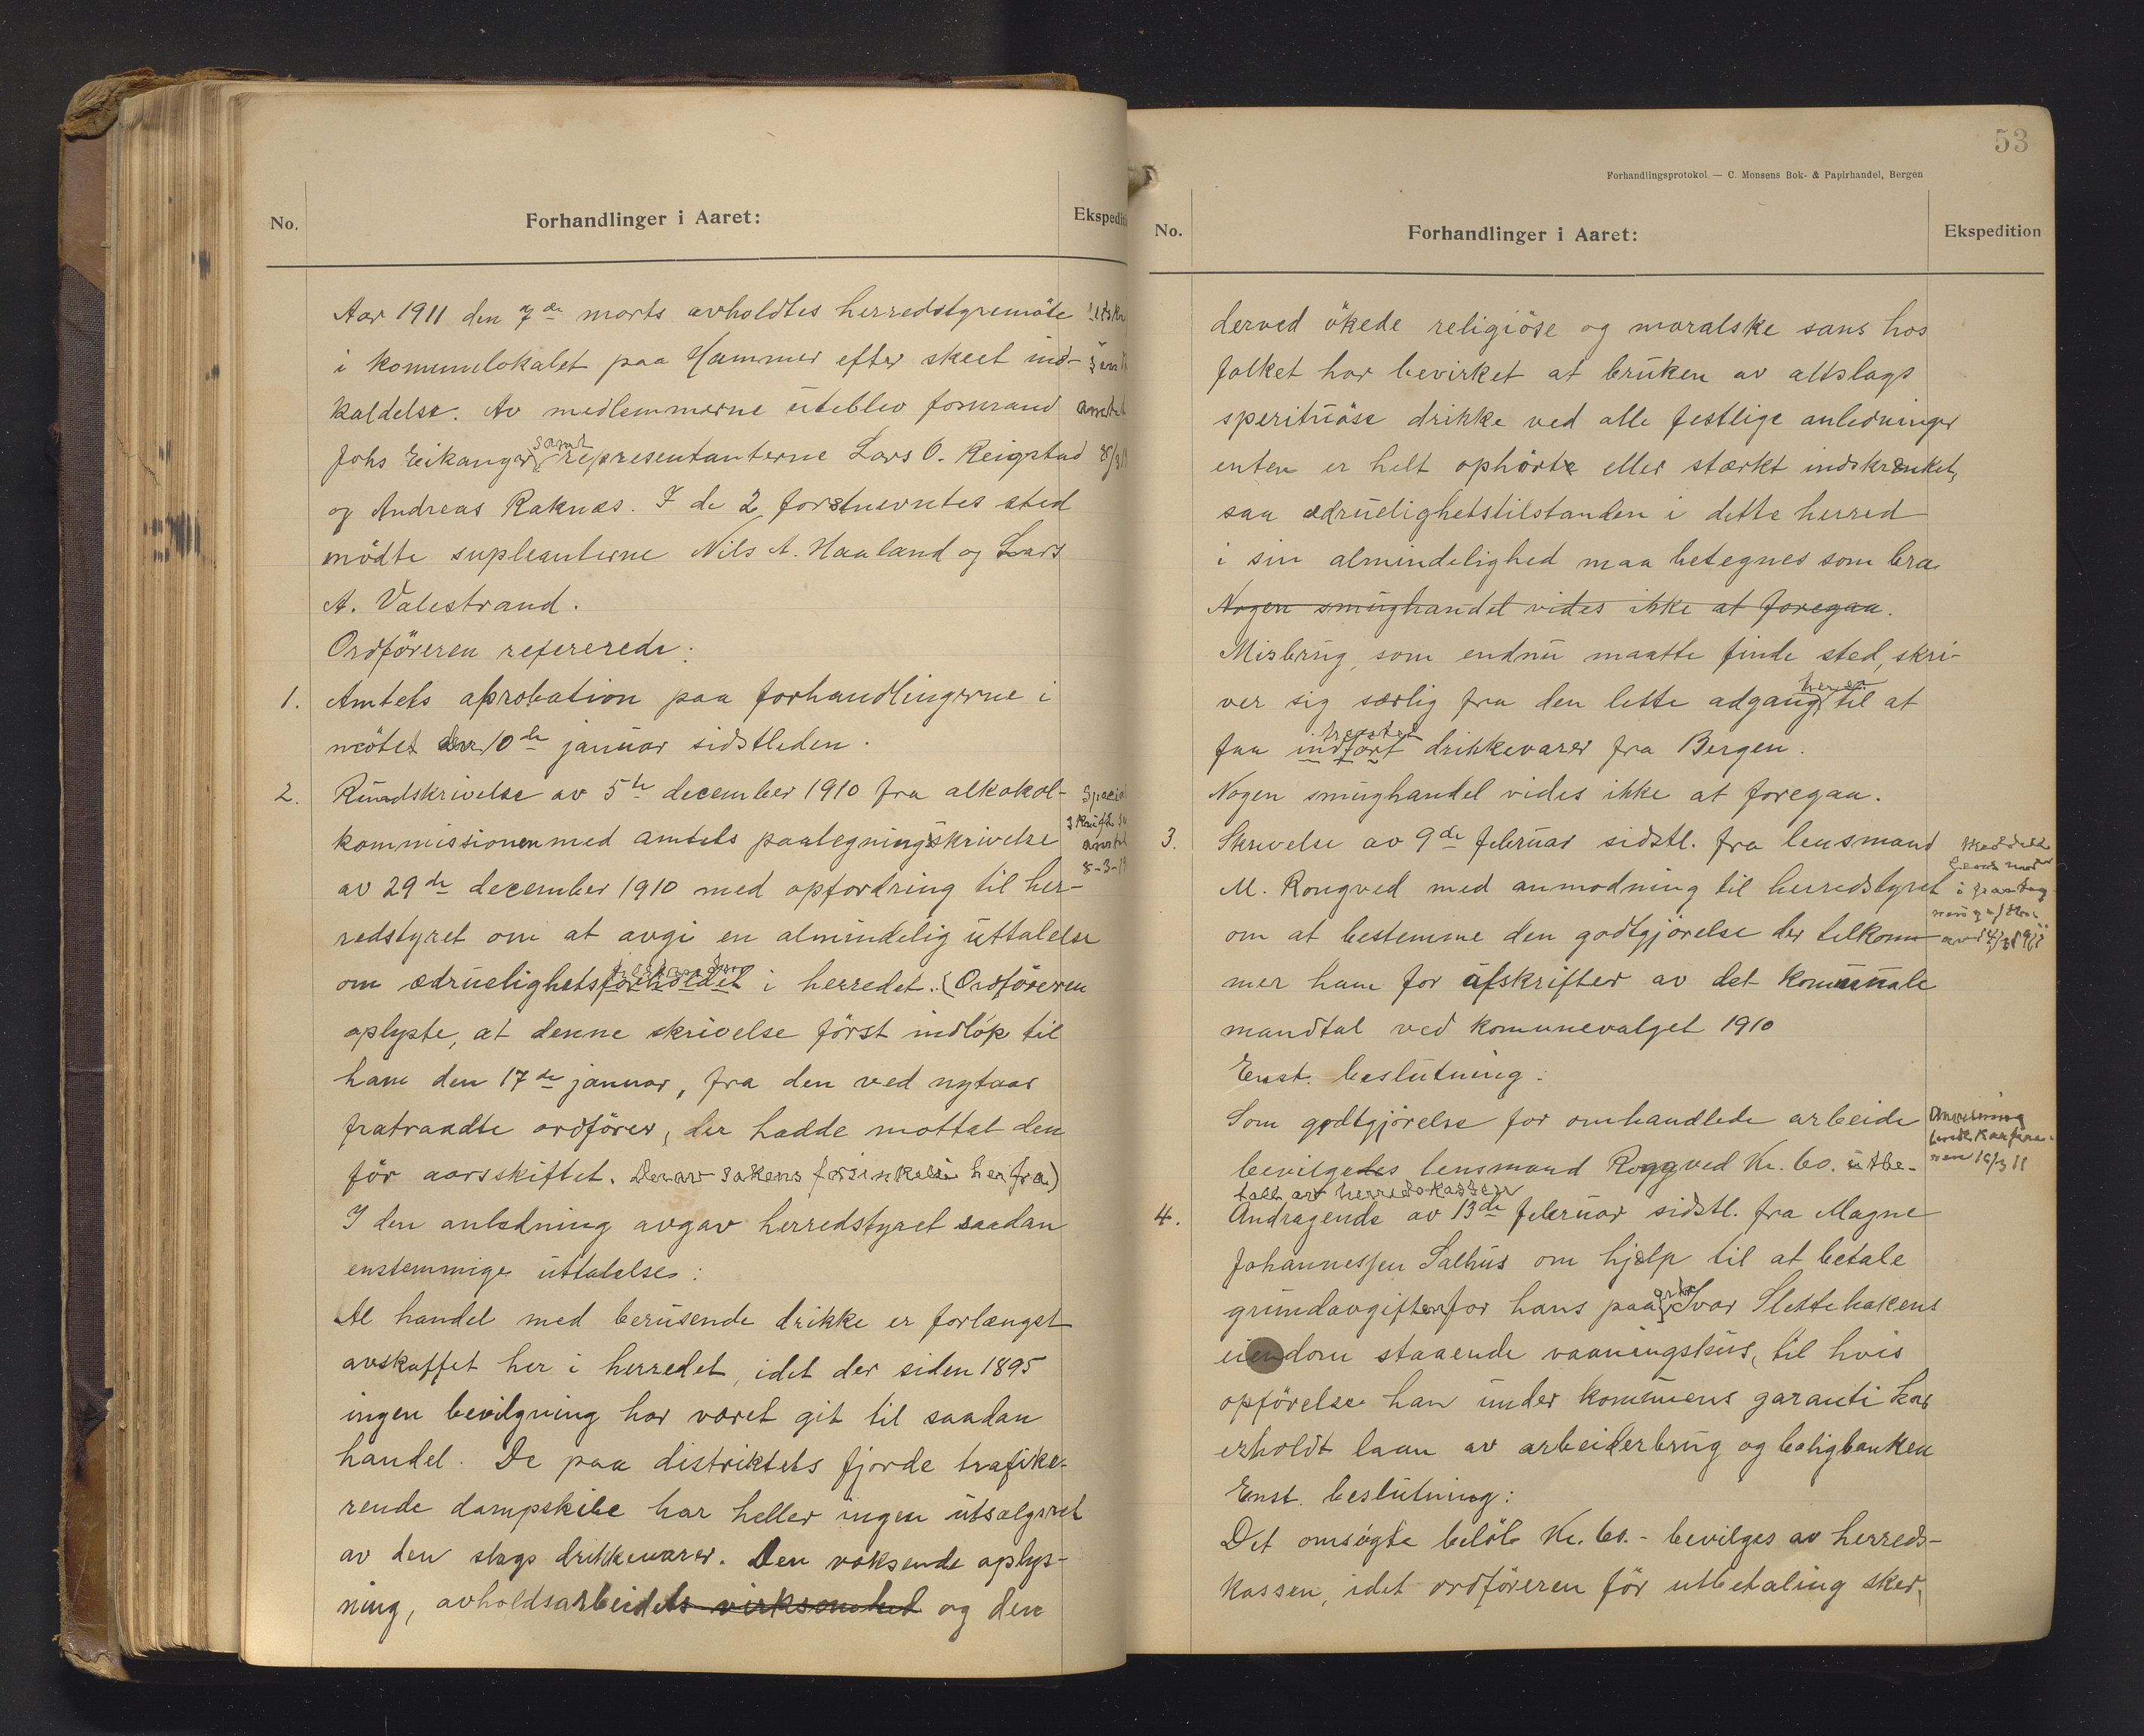 No.
Forhandlinger i Aaret:
Aar 1911 den 7de marts avholdtes herredstyremöte
i komunelokalet paa Hammer efter skeet ind-
kaldelse. Av medlemmerne uteblev formand
samt
Johs Eikanger representanterne Lars O. Reigstad
og Andreas Raknes. I de 2 forstnevntes sted
mödte supleanterne Nils A. Haaland og Lars
A. Valestrand.
Ordföreren refererede:
1. Amtets aprobation paa forhandlingerne i
mötet den 10de januar sidstleden.
2. Rundskrivelse av 5te december 1910 fra alkohol-
kommissionen med amtets paategningsskrivelse
8-3-11
av 29de december 1910 med opfordring til her-
redstyret om at avgi en almindelig uttalelse
tilstanden
om ædruelighetsforholdet i herredet. (Ordföreren
oplyste, at denne skrivelse först indlöp til
ham den 17de januar, fra den ved nytaar
fratraadte ordförer, der hadde mottat den
för aarsskiftet. Derav sakens forsinkelse herfra)
I den anledning avgav herredstyret saadan
enstemmige uttalelse:
Al handel med berusende drikke er forlængst
avskaffet her i herredet, idet der siden 1895
ingen bevilgning har været git til saadan
handel. De paa distriktets fjorde trafike-
rende dampskibe har heller ingen utsalgsret
av den slags drikkevarer. Den voksende oplys-
ning, avholdsarbeidets virksomhed og den
53
Forhandlingsprotokol — C. Monsens Bok- & Papirhandel, Bergen
No.
Forhandlinger i Aaret:
Ekspedition
derved ökede religiöse og moralske sans hos
folket har bevirket at bruken av altslags
sperituöse drikke ved alle festlige anledninger
enten er helt ophörte eller stærkt indskrænket,
saa ædruelighetstilstanden i dette herred
i sin almindelighed maa betegnes som bra
Nogen smughandel vides ikke at foregaa.
Misbrug, som endnu maatte finde sted, skri-
ver sig særlig fra den lette adgang til at
faa indfört drikkevarer fra Bergen.
Nogen smughandel vides ikke at foregaa.
3. Skrivelse av 9de februar sidstl. fra lensmand
M. Rongved med anmodning til herredstyret
om at bestemme den godtgjörelse der tilkom-
mer ham for afskrifter av det komunale
mandtal ved komunevalget 1910
Enst. beslutning:
Som godtgjörelse for omhandlede arbeide
Anvisning
bevilgedes lensmand Rongved Kr. 60. utbe-
talt av herredskassen
4. Andragende av 13de februar sidstl. fra Magne
Johannessen Salhus om hjælp til at betale
grundavgiften for hans paa Ivar Slettebakens
eiendom staaende vaaningshus, til hvis
opförelse han under kommunens garanti har
erholdt laan av arbeiderbrug og boligbanken
Enst. beslutning:
Det omsögte belöb Kr. 60.- bevilges av herreds-
kassen, idet ordföreren för utbetaling sker,